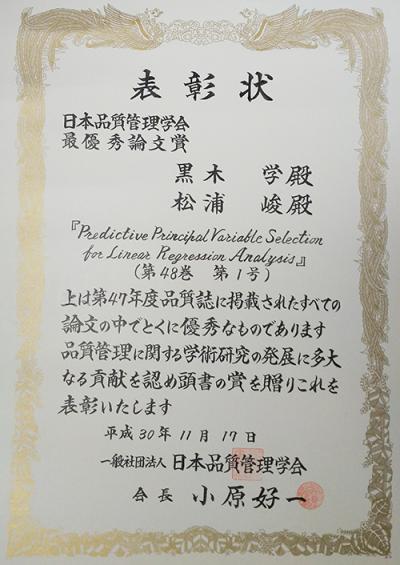 表彰状
日本品質管理学会
最優秀論文賞
黒木 学殿
松浦 峻殿
『Predictive Principal Variable Selection
for Linear Regression Analysis』
(第48巻 第1号)
上は第47年度品質誌に掲載されたすべての
論文の中でとくに優秀なものであります
品質管理に関する学術研究の発展に多大
なる貢献を認め頭書の賞を贈りこれを
表彰いたします
平成30年11月17日
一般社団法人 日本品質管理学会
会長 小原好一